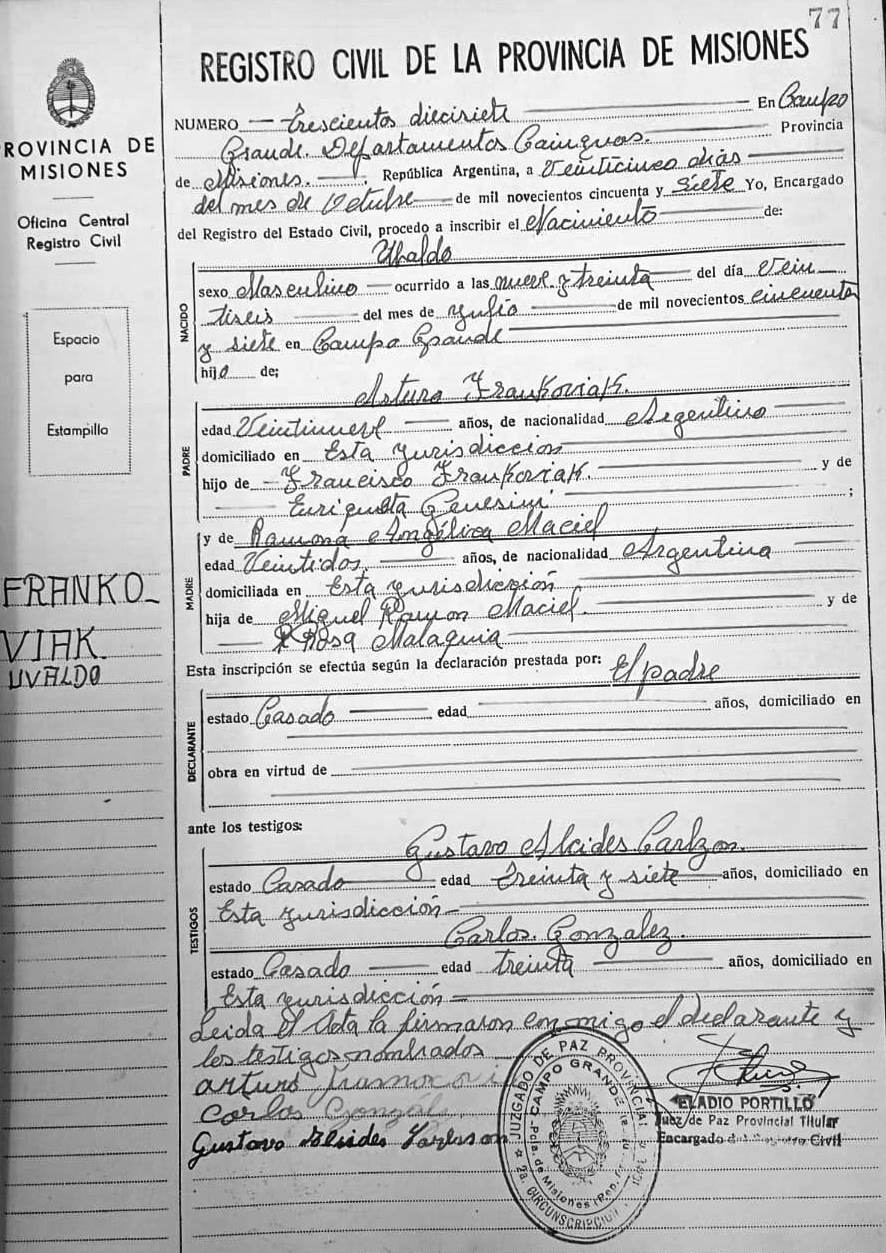 77
REGISTRO CIVIL DE LA PROVINCIA DE MISIONES
PROVINCIA DE
MISIONES
Oficina Central
Registro Civil
Espacio
para
Estampilla
FRANKO_
VIAK
UVALDO
NUMERO Trescientos diecisiete En Campo
Grande. Departamentos Cainguas. Provincia
de Misiones. República Argentina, a Veinticinco días
del mes de Octubre de mil novecientos cincuenta y Siete Yo, Encargado
del Registro del Estado Civil, procedo a inscribir el Nacimiento de:
NACIDO
Ubaldo
sexo Masculino ocurrido a las nueve y treinta del día Vein
tiseis del mes de Julio de mil novecientos cincuenta
y siete en Campo Grande
hijo de;
PADRE
Arturo Frankoviak.
edad Veintinueve años, de nacionalidad Argentino
domiciliado en Esta jurisdicción
hijo de Francisco Frankoviak. y de
Enriqueta Genesini ;
MADRE
y de Ramona Angélica Maciel
edad Veintidos, años, de nacionalidad Argentina
domiciliada en Esta jurisdicción
hija de Miguel Ramon Maciel. y de
Rosa Malaquia
Esta inscripción se efectúa según la declaración prestada por: El padre
DECLARANTE
estado Casado edad años, domiciliado en
obra en virtud de
ante los testigos:
TESTIGOS
Gustavo Alcides Carlzon.
estado Casado edad Treinta y siete años, domiciliado en
Esta jurisdicción
Carlos Gonzalez.
estado Casado edad treinta años, domiciliado en
Esta jurisdicción
Leida el Acta la firmaron conmigo el declarante y
los testigos nombrados
arturo
Carlos
Gustavo Alcides
JUZGADO DE PAZ PROVINCIAL
CAMPO GRANDE
Pcia. de Misiones (Rep.
2a. CIRCUNSCRIPCION
ELADIO PORTILLO
Juez de Paz Provincial Titular
Encargado del Registro Civil